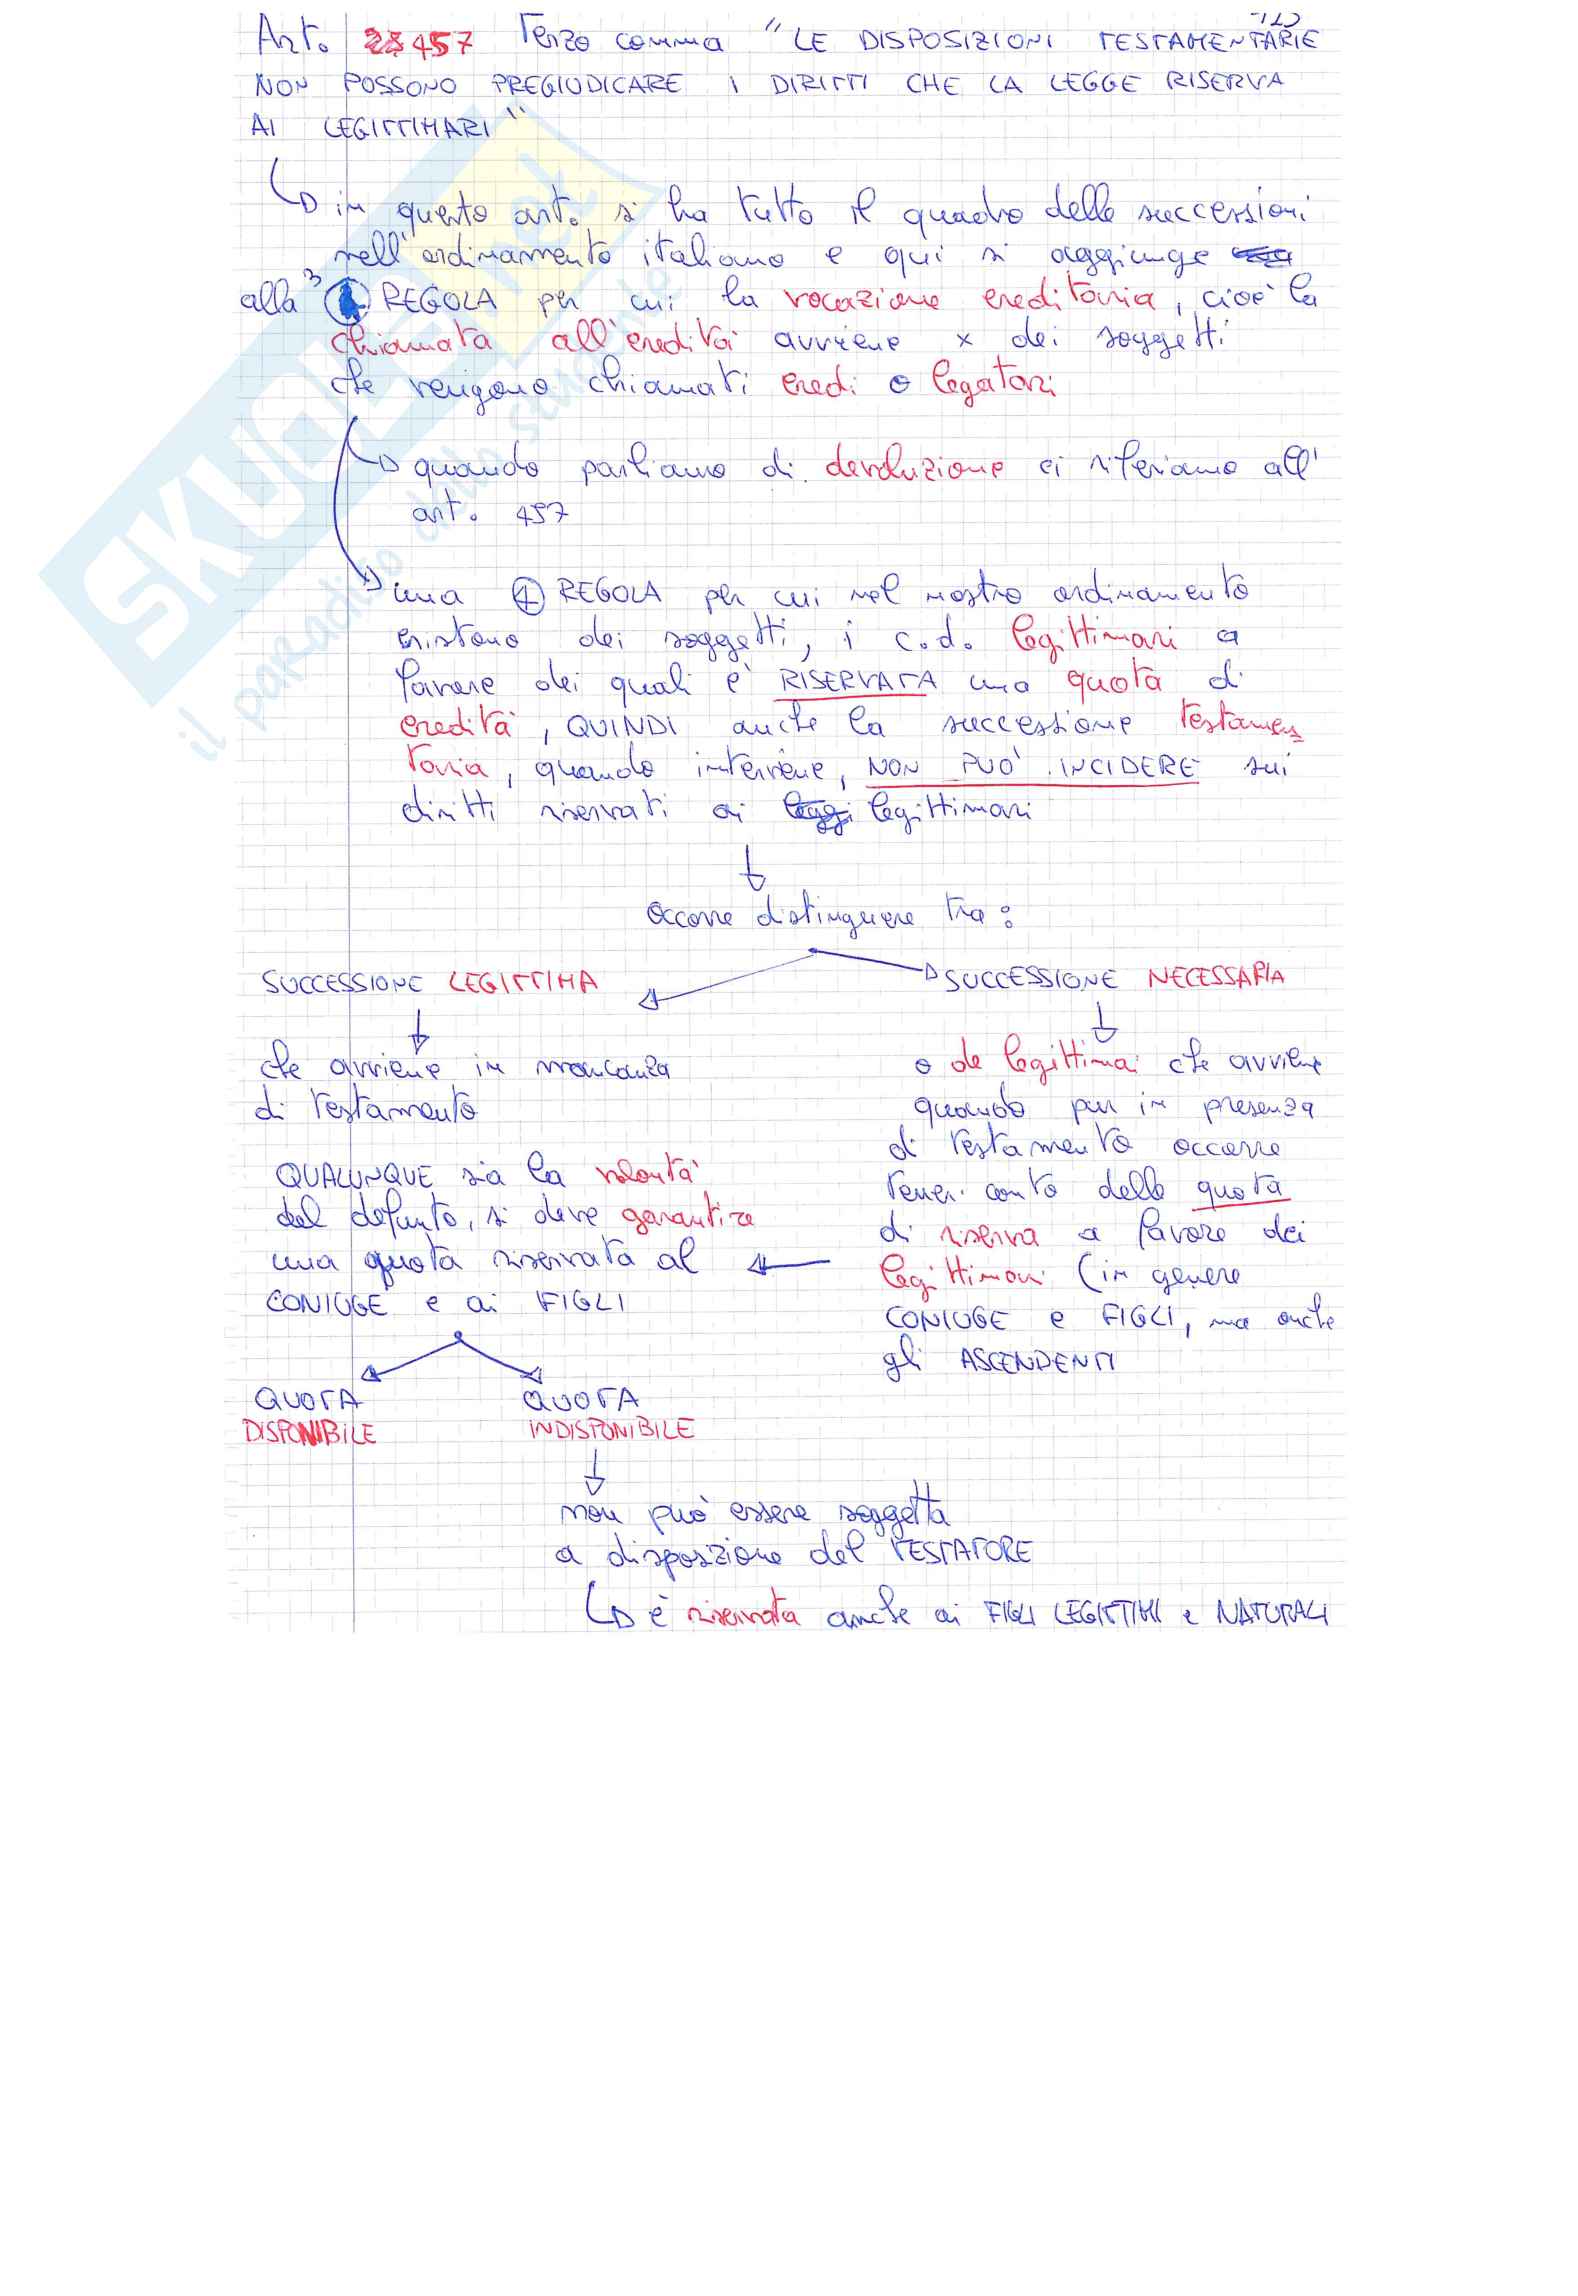 Art. 457 Terzo comma "LE DISPOSIZIONI TESTAMENTARIE
NON POSSONO PREGIUDICARE I DIRITTI CHE LA LEGGE RISERVA
AI LEGITTIMARI"
in questo art. si ha tutto il quadro delle successioni
nell'ordinamento italiano e qui si aggiunge
alla 3 REGOLA per cui la vocazione ereditaria, cioè la
chiamata all'eredità avviene x dei soggetti
che vengono chiamati eredi o legatari
quando parliamo di devoluzione ci riferiamo all'
art. 457
una 4 REGOLA per cui nel nostro ordinamento
esistono dei soggetti, i c.d. legittimari a
favore dei quali è RISERVATA una quota di
eredità, QUINDI anche la successione testamen
taria, quando interviene, NON PUÒ INCIDERE sui
diritti riservati ai legittimari
occorre distinguere tra:
SUCCESSIONE LEGITTIMA
che avviene in mancanza
di testamento
SUCCESSIONE NECESSARIA
o de legittima: che avviene
quando pur in presenza
di testamento occorre
tener conto delle quota
di riserva a favore dei
legittimari (in genere
CONIUGE e FIGLI, ma anche
gli ASCENDENTI
QUALUNQUE sia la volontà
del defunto, si deve garantire
una quota riservata al
CONIUGE e ai FIGLI
QUOTA
DISPONIBILE
QUOTA
INDISPONIBILE
non può essere soggetta
a disposizione del TESTATORE
è riservata anche ai FIGLI LEGITTIMI e NATURALI
SKUOLA.net
il paradiso dello studente